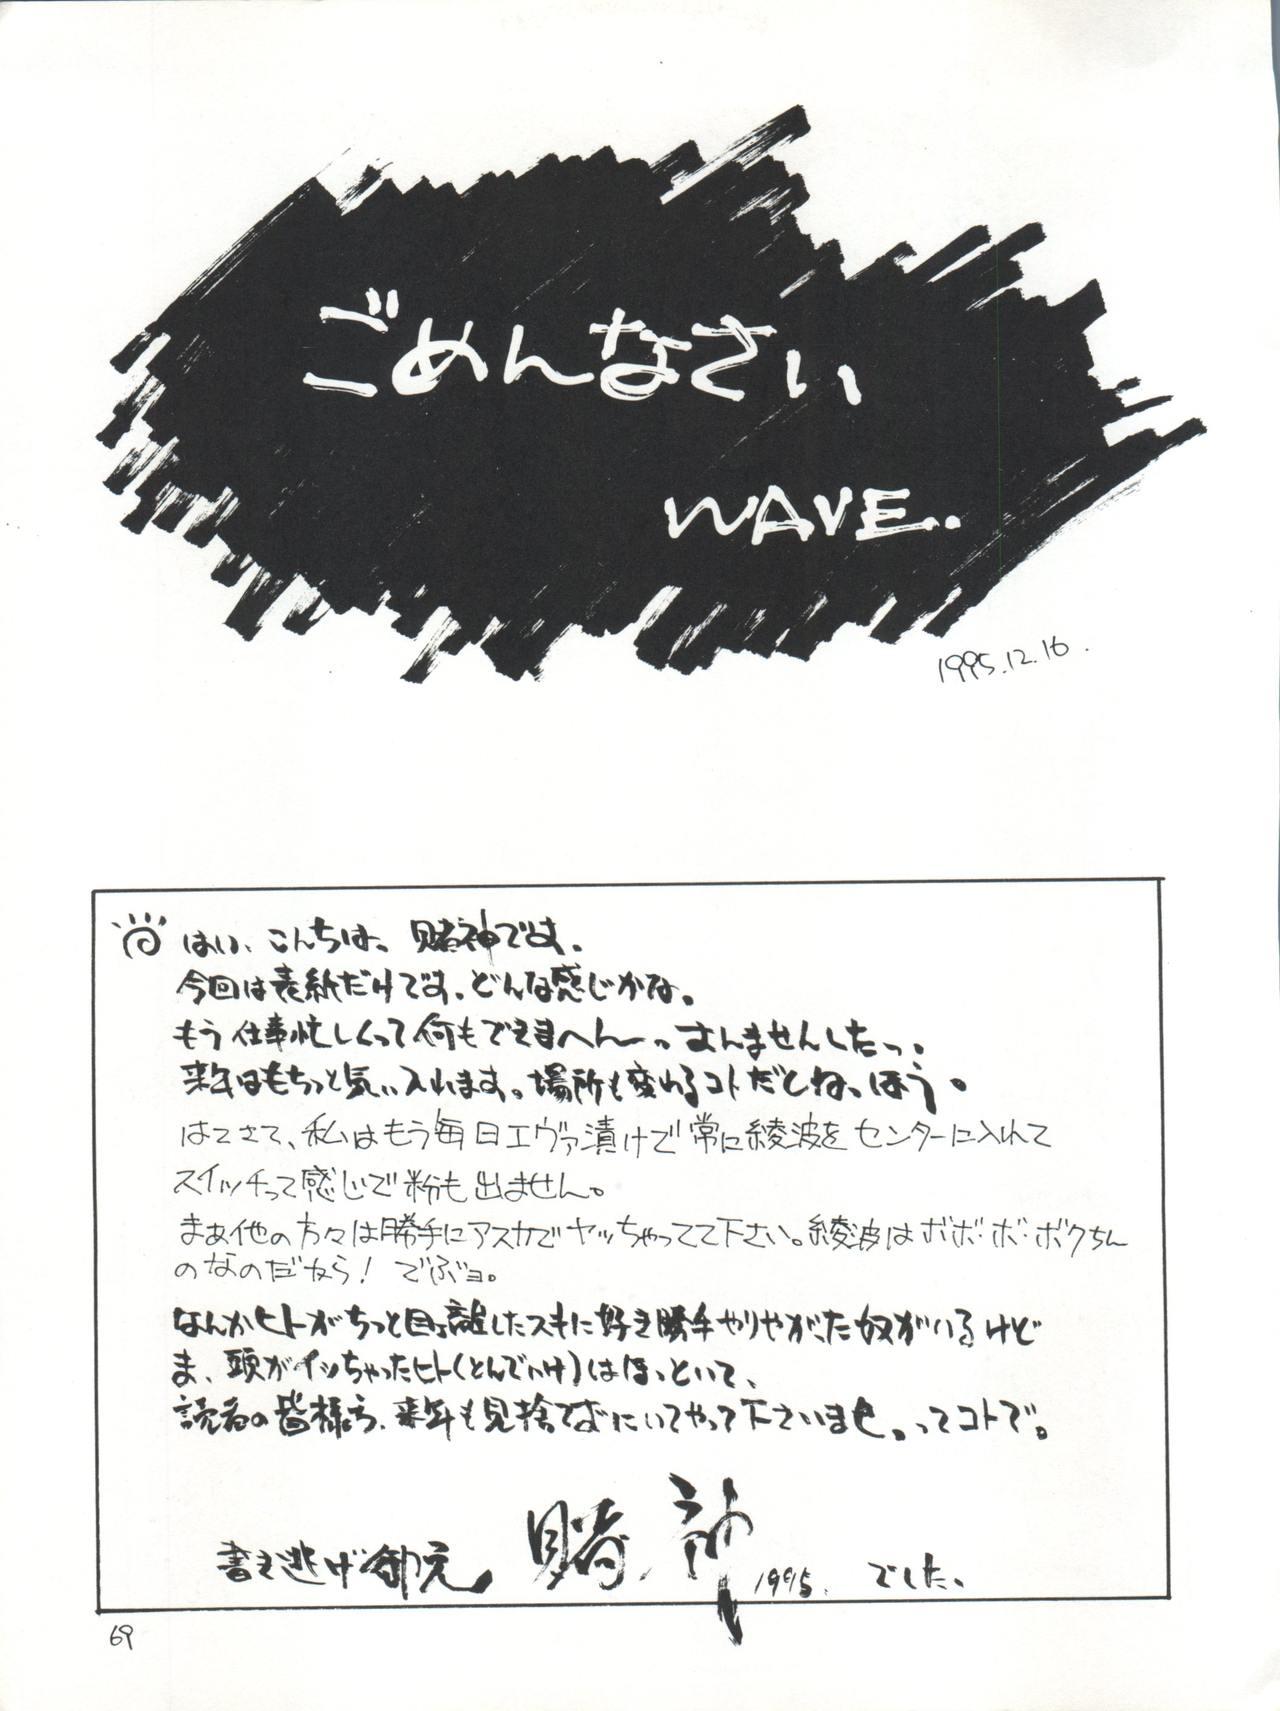 ごめんなさい
WAVE.
1995.12.16.
はい、こんちは、賭神です。
今回は表紙だけです。どんな感じかな。
もう仕事忙しくって何もできまへんーっすんませんしたっ。
来年はもちっと気ぃ入れます。場所も変わるコトだしねっほう。
はてさて、私はもう毎日エヴァ漬けで常に綾波をセンターに入れて
スイッチって感じで粉も出ません。
まぁ他の方々は勝手にアスカでヤッちゃってて下さい。綾波はボボ・ボ・ボクちん
のなのだから！でぶョ。
なんかヒトがちっと目ぇ離したスキに好き勝手やりやがった奴がいるけど
ま、頭がイッちゃったヒト(とんでいけ)はほっといて、
読者の皆様方、来年も見捨てずにいてやって下さいませ。ってコトで。
書き逃げ御免 賭神 1995. でした。
69